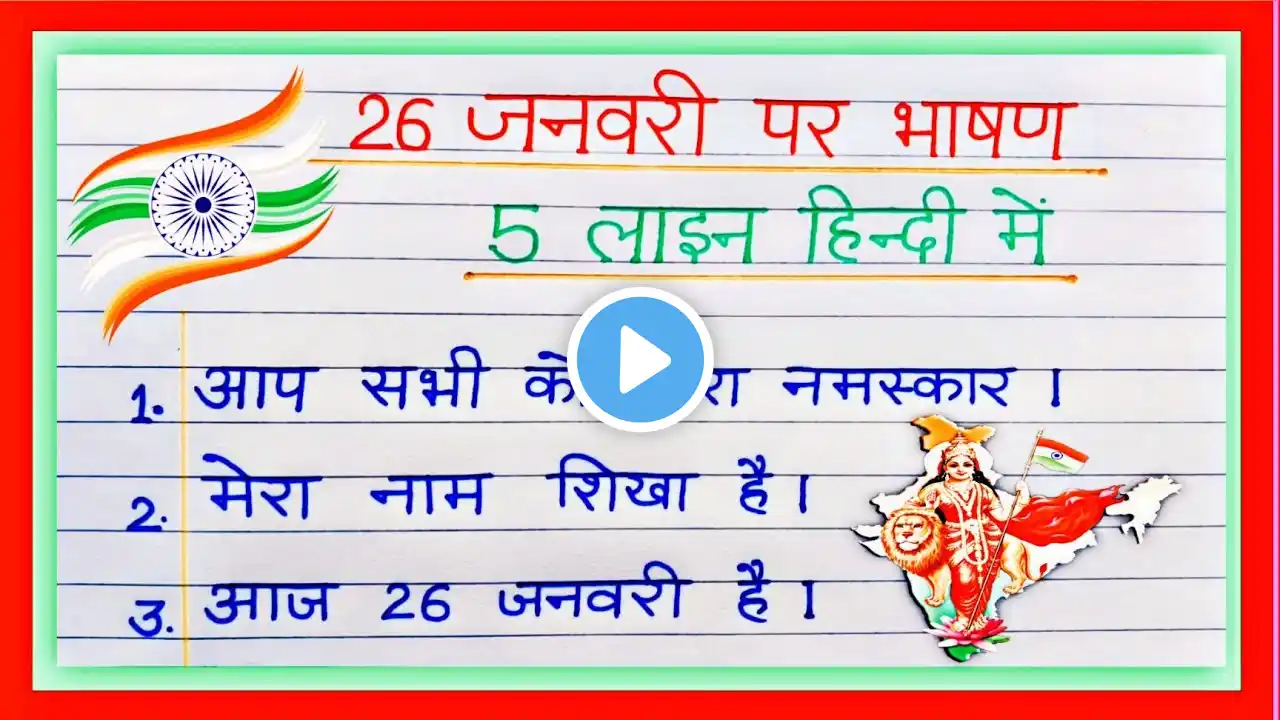 26 जनवरी पर भाषण
5 लाइन हिन्दी में
1. आप सभी को नमस्कार ।
2. मेरा नाम शिखा है ।
3. आज 26 जनवरी है ।